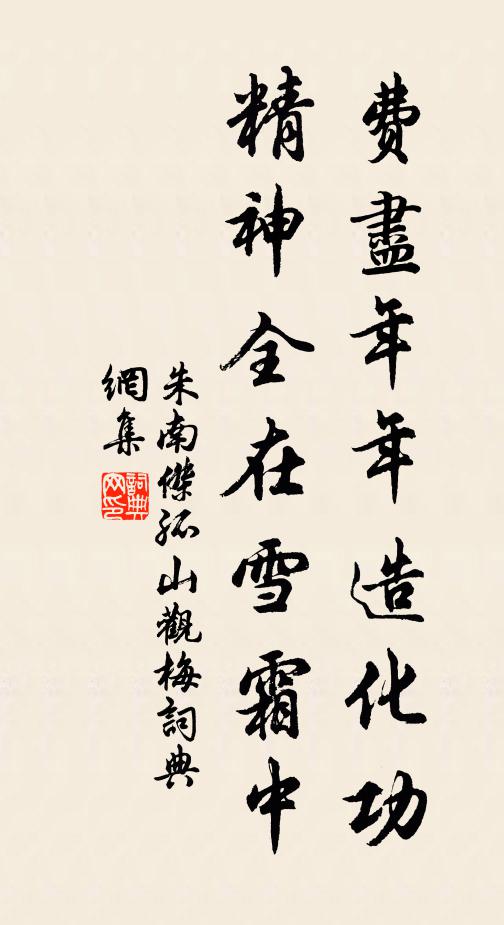 費盡年年造化功
精神全在雪霜中
朱南傑孤山觀梅詞典
網集
詞典
网印